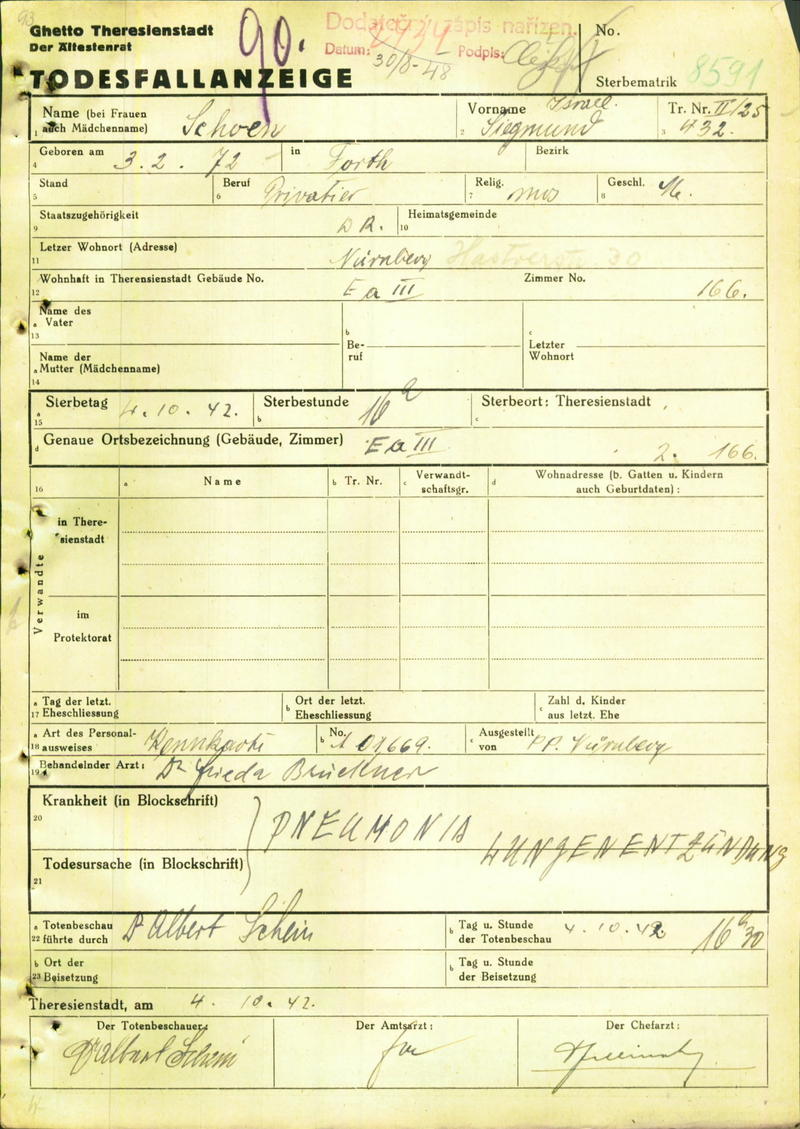 93
Ghetto Theresienstadt
Der Ältestenrat
90.
Dodatečný zápis nařízen.
Datum: 30/8-48 Podpis:
No.
TODESFALLANZEIGE
Sterbematrik 8591
Name (bei Frauen auch Mädchenname) Schoen
1
Vorname Israel. Siegmund
2
Tr. Nr. II/25 432.
3
Geboren am 3. 2. 72 in Forth Bezirk
4
Stand Beruf Privatier Relig. mos Geschl. M.
5 6 7 8
Staatszugehörigkeit D R. Heimatsgemeinde
9 10
Letzer Wohnort (Adresse) Nürnberg 30
11
Wohnhaft in Therensienstadt Gebäude No. E a III Zimmer No. 166.
12
Name des
a Vater
13
b Be-ruf
c Letzter Wohnort
Name der
a Mutter (Mädchenname)
14
a Sterbetag 4. 10. 42. b Sterbestunde 16 c Sterbeort: Theresienstadt
15
d Genaue Ortsbezeichnung (Gebäude, Zimmer) E a III 2. 166.
16 a Name b Tr. Nr. c Verwandt-schaftsgr. d Wohnadresse (b. Gatten u. Kindern auch Geburtdaten) :
Verwandte
in There-sienstadt
im Protektorat
a Tag der letzt.
17 Eheschliessung
b Ort der letzt. Eheschliessung
c Zahl d. Kinder aus letzt. Ehe
a Art des Personal-
18 ausweises Kennkarte
b No. A 01669.
c Ausgestellt von P.P. Nürnberg
19 Behandelnder Arzt: Dr Frieda Brückner
Krankheit (in Blockschrift)
20
PNEUMONIA LUNGENENTZÜNDUNG
Todesursache (in Blockschrift)
21
a Totenbeschau
22 führte durch Dr Albert Schein
b Tag u. Stunde der Totenbeschau 4. 10. 42 16 30
b Ort der
23 Beisetzung
b Tag u. Stunde der Beisetzung
Theresienstadt, am 4. 10. 42.
Der Totenbeschauer: Der Amtsarzt: Der Chefarzt:
Dr Albert Schein